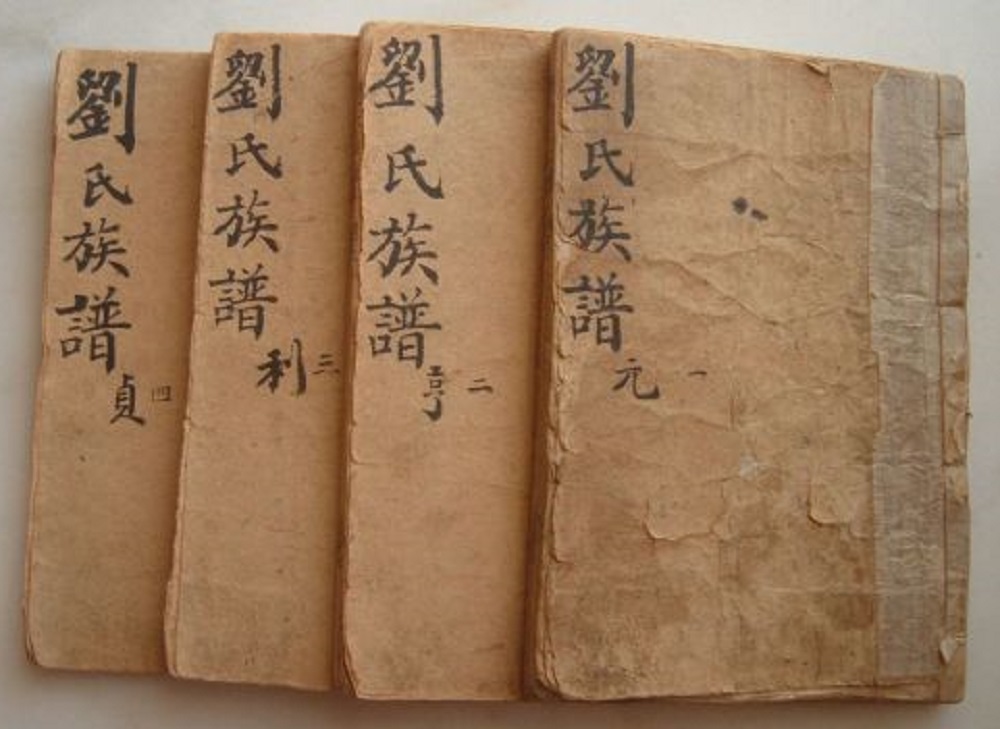 劉氏族譜
元 一
劉氏族譜
亨 二
劉氏族譜
利 三
劉氏族譜
貞 四